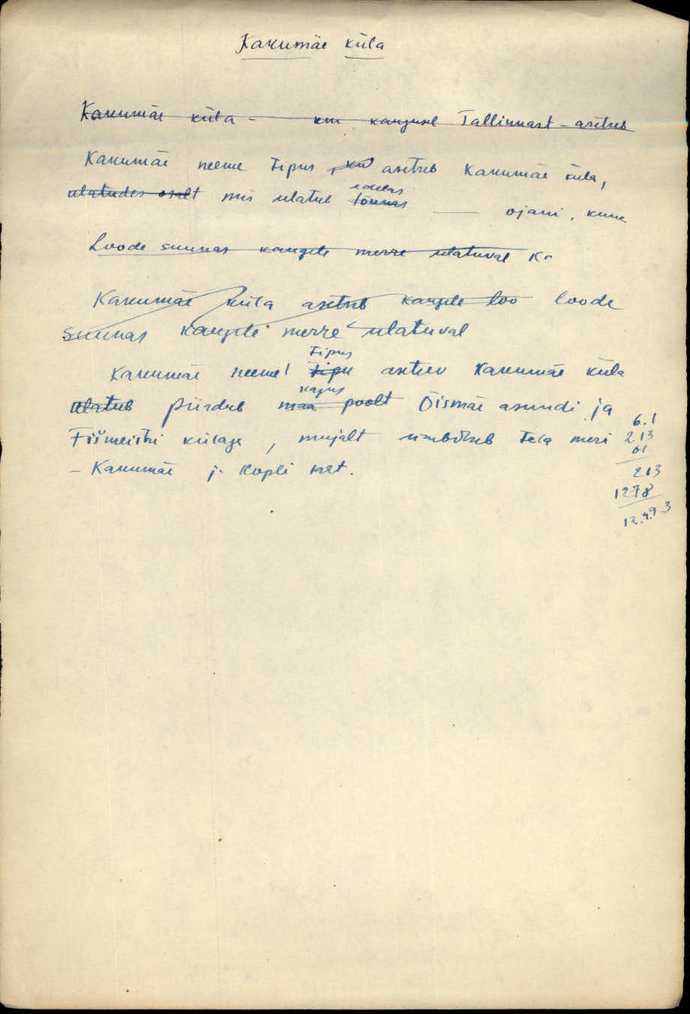 Kakumäe küla
Kakumäe küla - km kaugusel Tallinnast - asetseb
Kakumäe neeme tipus, kus asetseb Kakumäe küla,
ulatudes osalt mis ulatub lõunas — ojani, kuna
edelas
Loode suunas kaugele merre ulatuval Ka
Kakumäe küla asetseb kaugele loo loode
suunas kaugele merre ulatuval
tipus
Kakumäe neemel tipu asuv Kakumäe küla
kagus
ulatub piirdub maa poolt Õismäe asundi ja
Tišmeistri külaga, mujalt ümbritseb teda meri
- Kakumäe j. Kopli laht.
6.1
213
61
213
1278